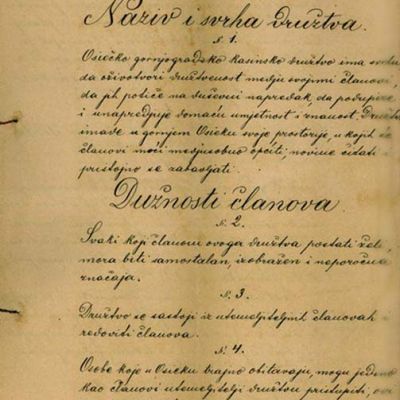 Naziv i svrha družtva.
§ 1.
Osiečko gornjogradsko kasinsko družtvo ima svrhu
da oživotvori družtvenost medju svojimi članovi,
da jih potiče na duševni napredak, da podupire
i unapredjuje domaću umjetnost i znanost. Družtvo
imade u gornjem Osieku svoje prostorije, u kojih će
članovi moći medjusobno obćiti, novine čitati i
pristojno se zabavljati.
Dužnosti članova.
§ 2.
Svaki koji članom ovoga družtva postati želi,
mora biti samostalan, izobražen i neporočna
značaja.
§ 3.
Družtvo se sastoji iz utemeljiteljnih članovah i
redoviti članova.
§ 4.
Osobe koje u Osieku trajno obitavaju, mogu jedino
kao članovi utemeljitelji družtvu pristupiti, ovi